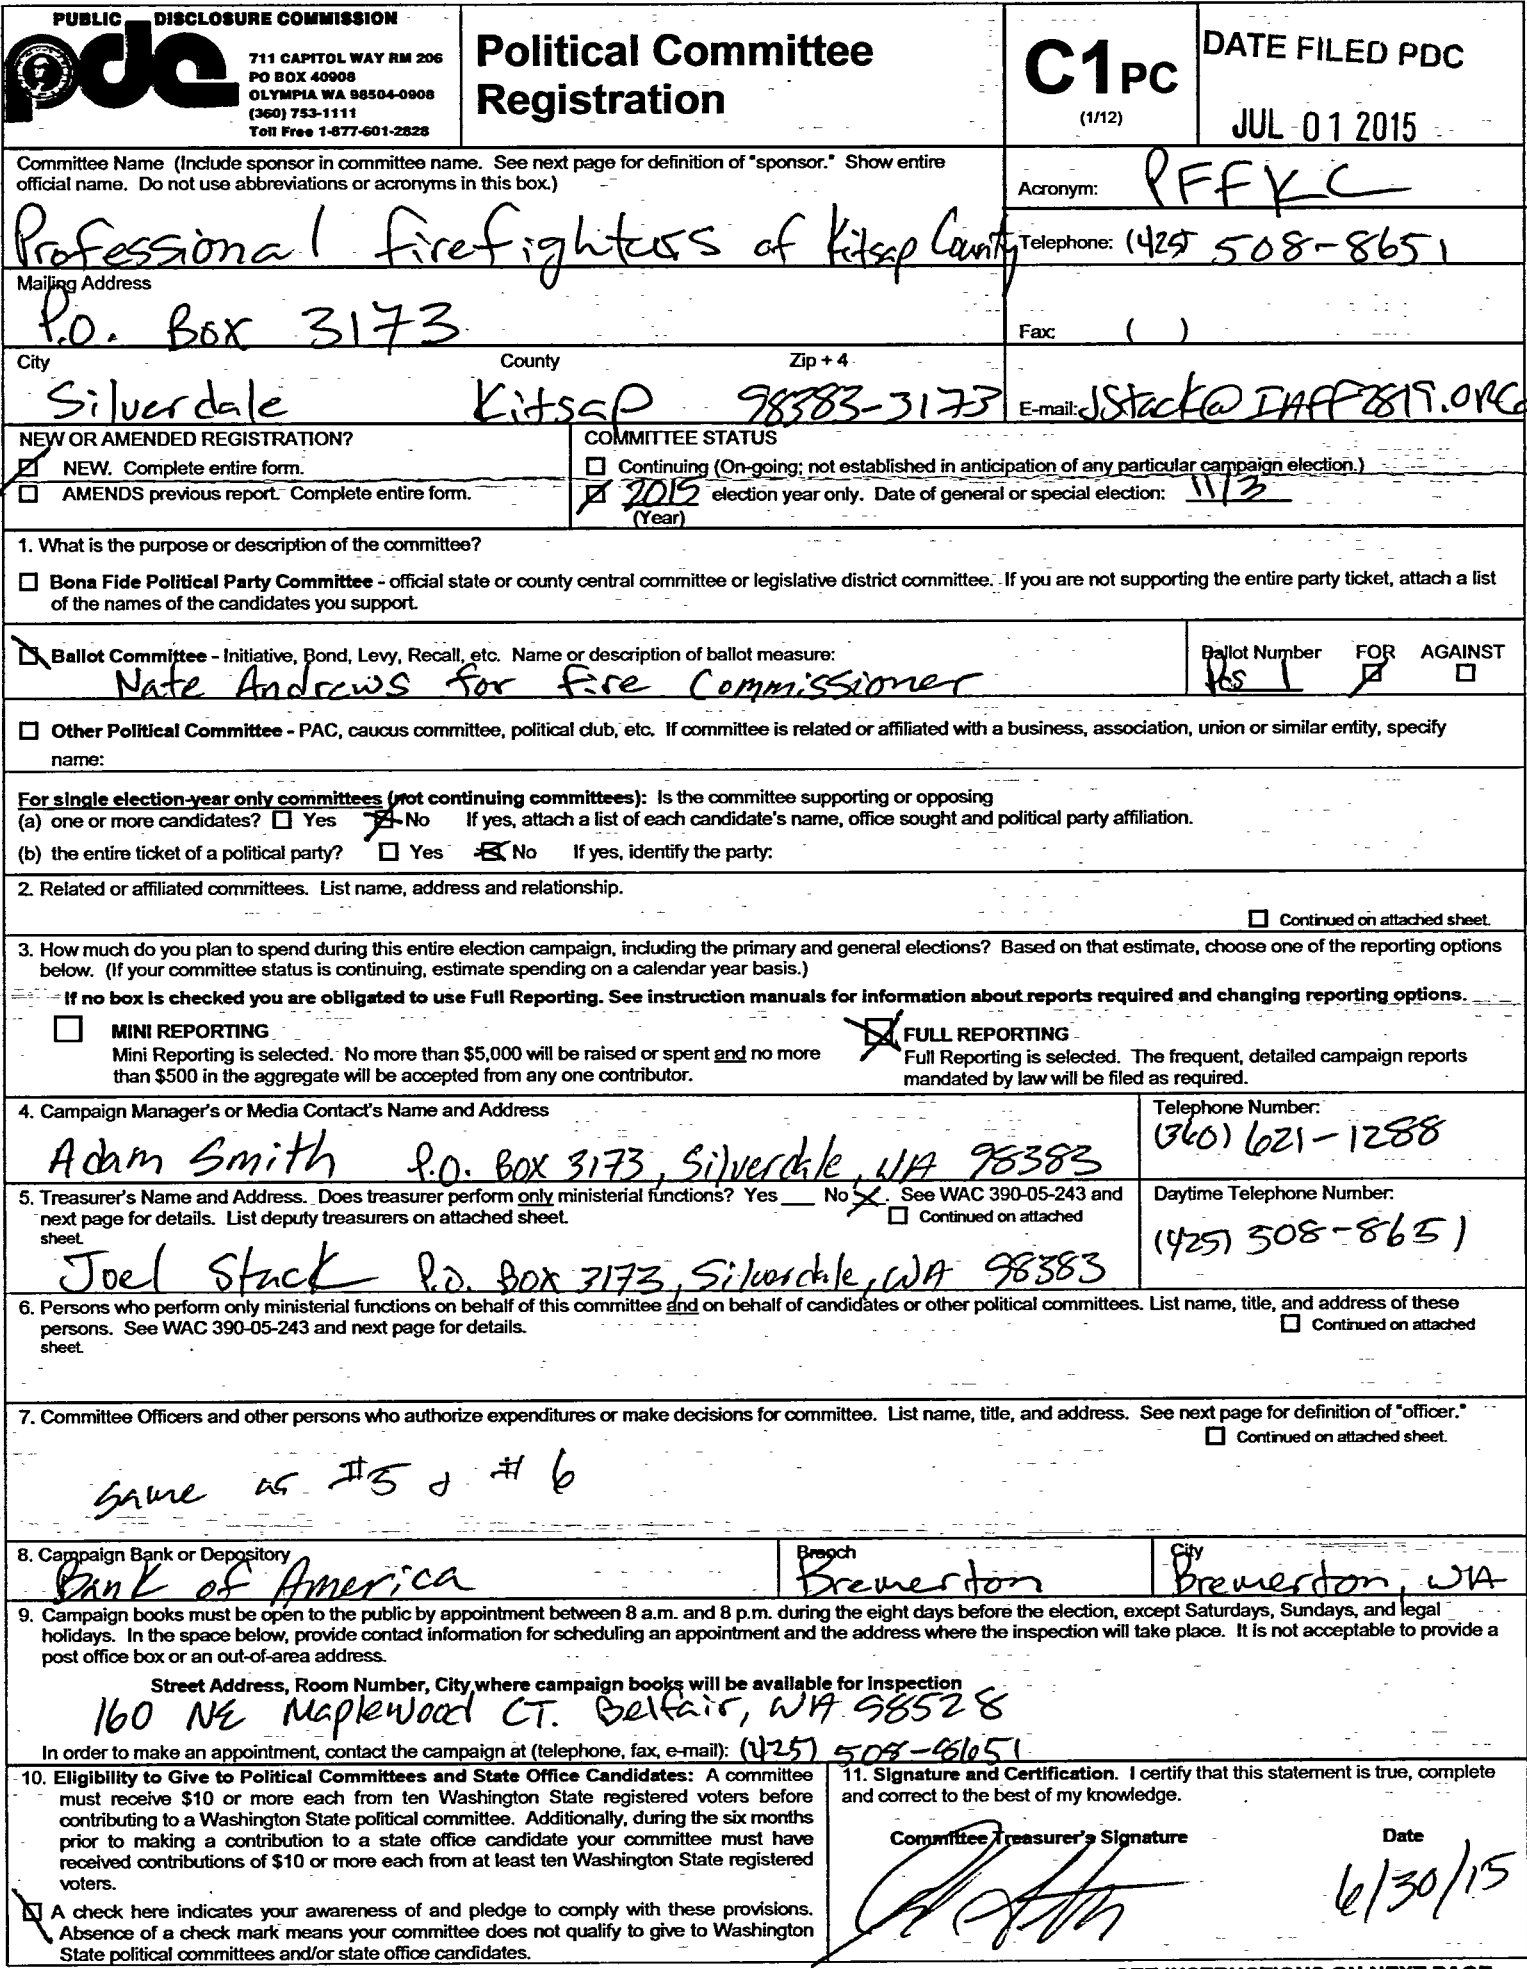 PUBLIC DISCLOSURE COMMISSION
pdc
711 CAPITOL WAY RM 206
PO BOX 40908
OLYMPIA WA 98504-0908
(360) 753-1111
Toll Free 1-877-601-2828
Political Committee
Registration
C1 PC
(1/12)
DATE FILED PDC
JUL 01 2015
Committee Name (Include sponsor in committee name. See next page for definition of "sponsor." Show entire
official name. Do not use abbreviations or acronyms in this box.)
Professional Firefighters of Kitsap County
Acronym: PFFKC
Telephone: (425) 508-8651
Mailing Address
P.O. Box 3173
Fax: ( )
City County Zip + 4
Silverdale Kitsap 98383-3173
E-mail: JStack@IAFF2819.ORG
NEW OR AMENDED REGISTRATION?
NEW. Complete entire form.
AMENDS previous report. Complete entire form.
COMMITTEE STATUS
Continuing (On-going; not established in anticipation of any particular campaign election.)
2015 election year only. Date of general or special election: 11/3
(Year)
1. What is the purpose or description of the committee?
Bona Fide Political Party Committee - official state or county central committee or legislative district committee. If you are not supporting the entire party ticket, attach a list
of the names of the candidates you support.
Ballot Committee - Initiative, Bond, Levy, Recall, etc. Name or description of ballot measure:
Nate Andrews for Fire Commissioner
Ballot Number FOR AGAINST
Pos 1
Other Political Committee - PAC, caucus committee, political club, etc. If committee is related or affiliated with a business, association, union or similar entity, specify
name:
For single election-year only committees (not continuing committees): Is the committee supporting or opposing
(a) one or more candidates? Yes No If yes, attach a list of each candidate's name, office sought and political party affiliation.
(b) the entire ticket of a political party? Yes No If yes, identify the party:
2. Related or affiliated committees. List name, address and relationship.
Continued on attached sheet.
3. How much do you plan to spend during this entire election campaign, including the primary and general elections? Based on that estimate, choose one of the reporting options
below. (If your committee status is continuing, estimate spending on a calendar year basis.)
If no box is checked you are obligated to use Full Reporting. See instruction manuals for information about reports required and changing reporting options.
MINI REPORTING
Mini Reporting is selected. No more than $5,000 will be raised or spent and no more
than $500 in the aggregate will be accepted from any one contributor.
FULL REPORTING
Full Reporting is selected. The frequent, detailed campaign reports
mandated by law will be filed as required.
4. Campaign Manager's or Media Contact's Name and Address
Adam Smith P.O. Box 3173, Silverdale, WA 98383
Telephone Number:
(360) 621-1288
5. Treasurer's Name and Address. Does treasurer perform only ministerial functions? Yes ___ No X. See WAC 390-05-243 and
next page for details. List deputy treasurers on attached sheet. Continued on attached
sheet.
Joel Stack P.O. Box 3173, Silverdale, WA 98383
Daytime Telephone Number:
(425) 508-8651
6. Persons who perform only ministerial functions on behalf of this committee and on behalf of candidates or other political committees. List name, title, and address of these
persons. See WAC 390-05-243 and next page for details. Continued on attached
sheet.
7. Committee Officers and other persons who authorize expenditures or make decisions for committee. List name, title, and address. See next page for definition of "officer."
Continued on attached sheet.
same as #5 & #6
8. Campaign Bank or Depository
Bank of America
Branch
Bremerton
City
Bremerton, WA
9. Campaign books must be open to the public by appointment between 8 a.m. and 8 p.m. during the eight days before the election, except Saturdays, Sundays, and legal
holidays. In the space below, provide contact information for scheduling an appointment and the address where the inspection will take place. It is not acceptable to provide a
post office box or an out-of-area address.
Street Address, Room Number, City where campaign books will be available for Inspection
160 NE Maplewood CT. Belfair, WA 98528
In order to make an appointment, contact the campaign at (telephone, fax, e-mail): (425) 508-8651
10. Eligibility to Give to Political Committees and State Office Candidates: A committee
must receive $10 or more each from ten Washington State registered voters before
contributing to a Washington State political committee. Additionally, during the six months
prior to making a contribution to a state office candidate your committee must have
received contributions of $10 or more each from at least ten Washington State registered
voters.
A check here indicates your awareness of and pledge to comply with these provisions.
Absence of a check mark means your committee does not qualify to give to Washington
State political committees and/or state office candidates.
11. Signature and Certification. I certify that this statement is true, complete
and correct to the best of my knowledge.
Committee Treasurer's Signature Date
6/30/15